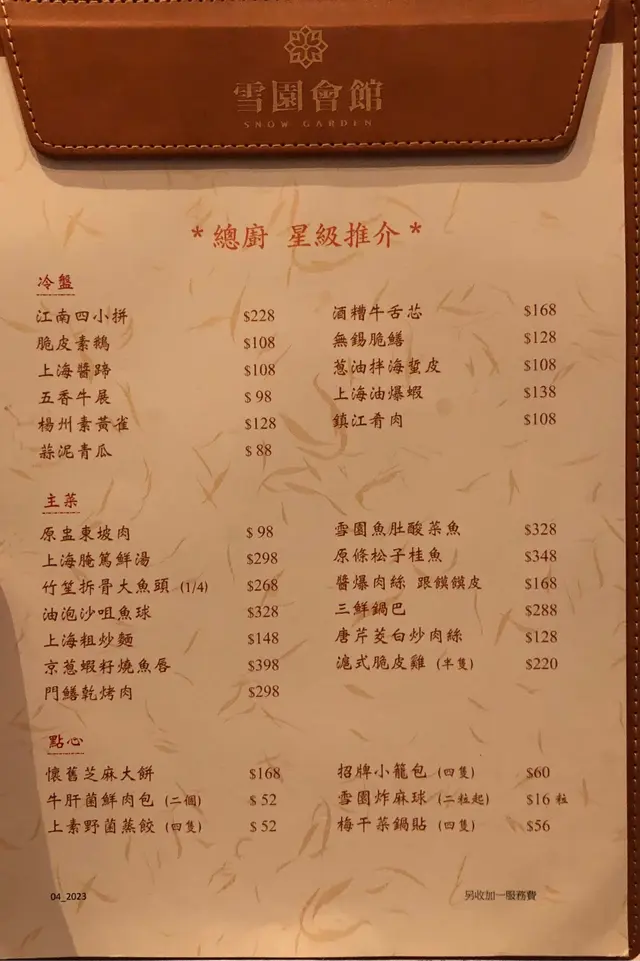 雪園會館
SNOW GARDEN
*總廚 星級推介*
冷盤
江南四小拼 $228
脆皮素鵝 $108
上海醬蹄 $108
五香牛展 $98
楊州素黃雀 $128
蒜泥青瓜 $88
酒糟牛舌芯 $168
無錫脆鱔 $128
蔥油拌海蜇皮 $108
上海油爆蝦 $138
鎮江肴肉 $108
主菜
原盅東坡肉 $98
上海腌篤鮮湯 $298
竹笙拆骨大魚頭 (1/4) $268
油泡沙咀魚球 $328
上海粗炒麵 $148
京蔥蝦籽燒魚唇 $398
門鱔乾烤肉 $298
雪園魚肚酸菜魚 $328
原條松子桂魚 $348
醬爆肉絲 跟饃饃皮 $168
三鮮鍋巴 $288
唐芹茭白炒肉絲 $128
滬式脆皮雞 (半隻) $220
點心
懷舊芝麻大餅 $168
牛肝菌鮮肉包 (二個) $52
上素野菌蒸餃 (四隻) $52
招牌小籠包 (四隻) $60
雪園炸麻球 (二粒起) $16 粒
梅干菜鍋貼 (四隻) $56
04_2023
另收加一服務費